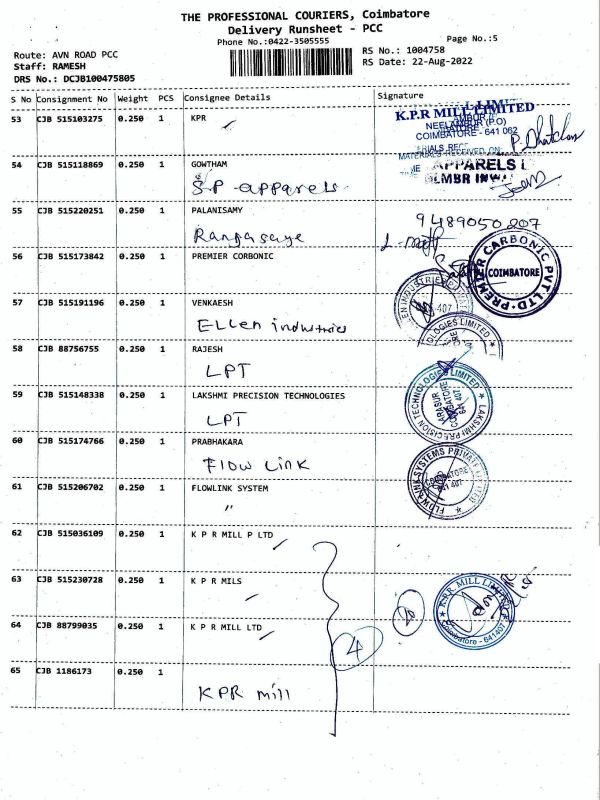 THE PROFESSIONAL COURIERS, Coimbatore
Delivery Runsheet - PCC
Phone No.:0422-3505555
Page No.:5
Route: AVN ROAD PCC
RS No.: 1004758
Staff: RAMESH
RS Date: 22-Aug-2022
DRS No.: DCJB100475805
S No Consignment No Weight PCS Consignee Details Signature
53 CJB 515103275 0.250 1 KPR
K.P.R MILL LIMITED
NEELAMBUR (P.O)
COIMBATORE - 641 062
MATERIALS RECEIVED ON
54 CJB 515118869 0.250 1 GOWTHAM
APPARELS
S.P apparels
55 CJB 515220251 0.250 1 PALANISAMY
9489050207
Rangasaye
56 CJB 515173842 0.250 1 PREMIER CORBONIC
PREMIER CARBONIC PVT LTD
COIMBATORE
57 CJB 515191196 0.250 1 VENKAESH
Ellen industries
58 CJB 88756755 0.250 1 RAJESH
LPT
59 CJB 515148338 0.250 1 LAKSHMI PRECISION TECHNOLOGIES
LPT
LAKSHMI PRECISION TECHNOLOGIES LIMITED
ARASUR
COIMBATORE
641 407
60 CJB 515174766 0.250 1 PRABHAKARA
Flow Link
61 CJB 515206702 0.250 1 FLOWLINK SYSTEM
"
FLOW LINK SYSTEMS PRIVATE LIMITED
COIMBATORE
641 407
62 CJB 515036109 0.250 1 K P R MILL P LTD
63 CJB 515230728 0.250 1 K P R MILS
64 CJB 88799035 0.250 1 K P R MILL LTD
K.P.R MILL LIMITED
Coimbatore - 641407
4
65 CJB 1186173 0.250 1
KPR mill